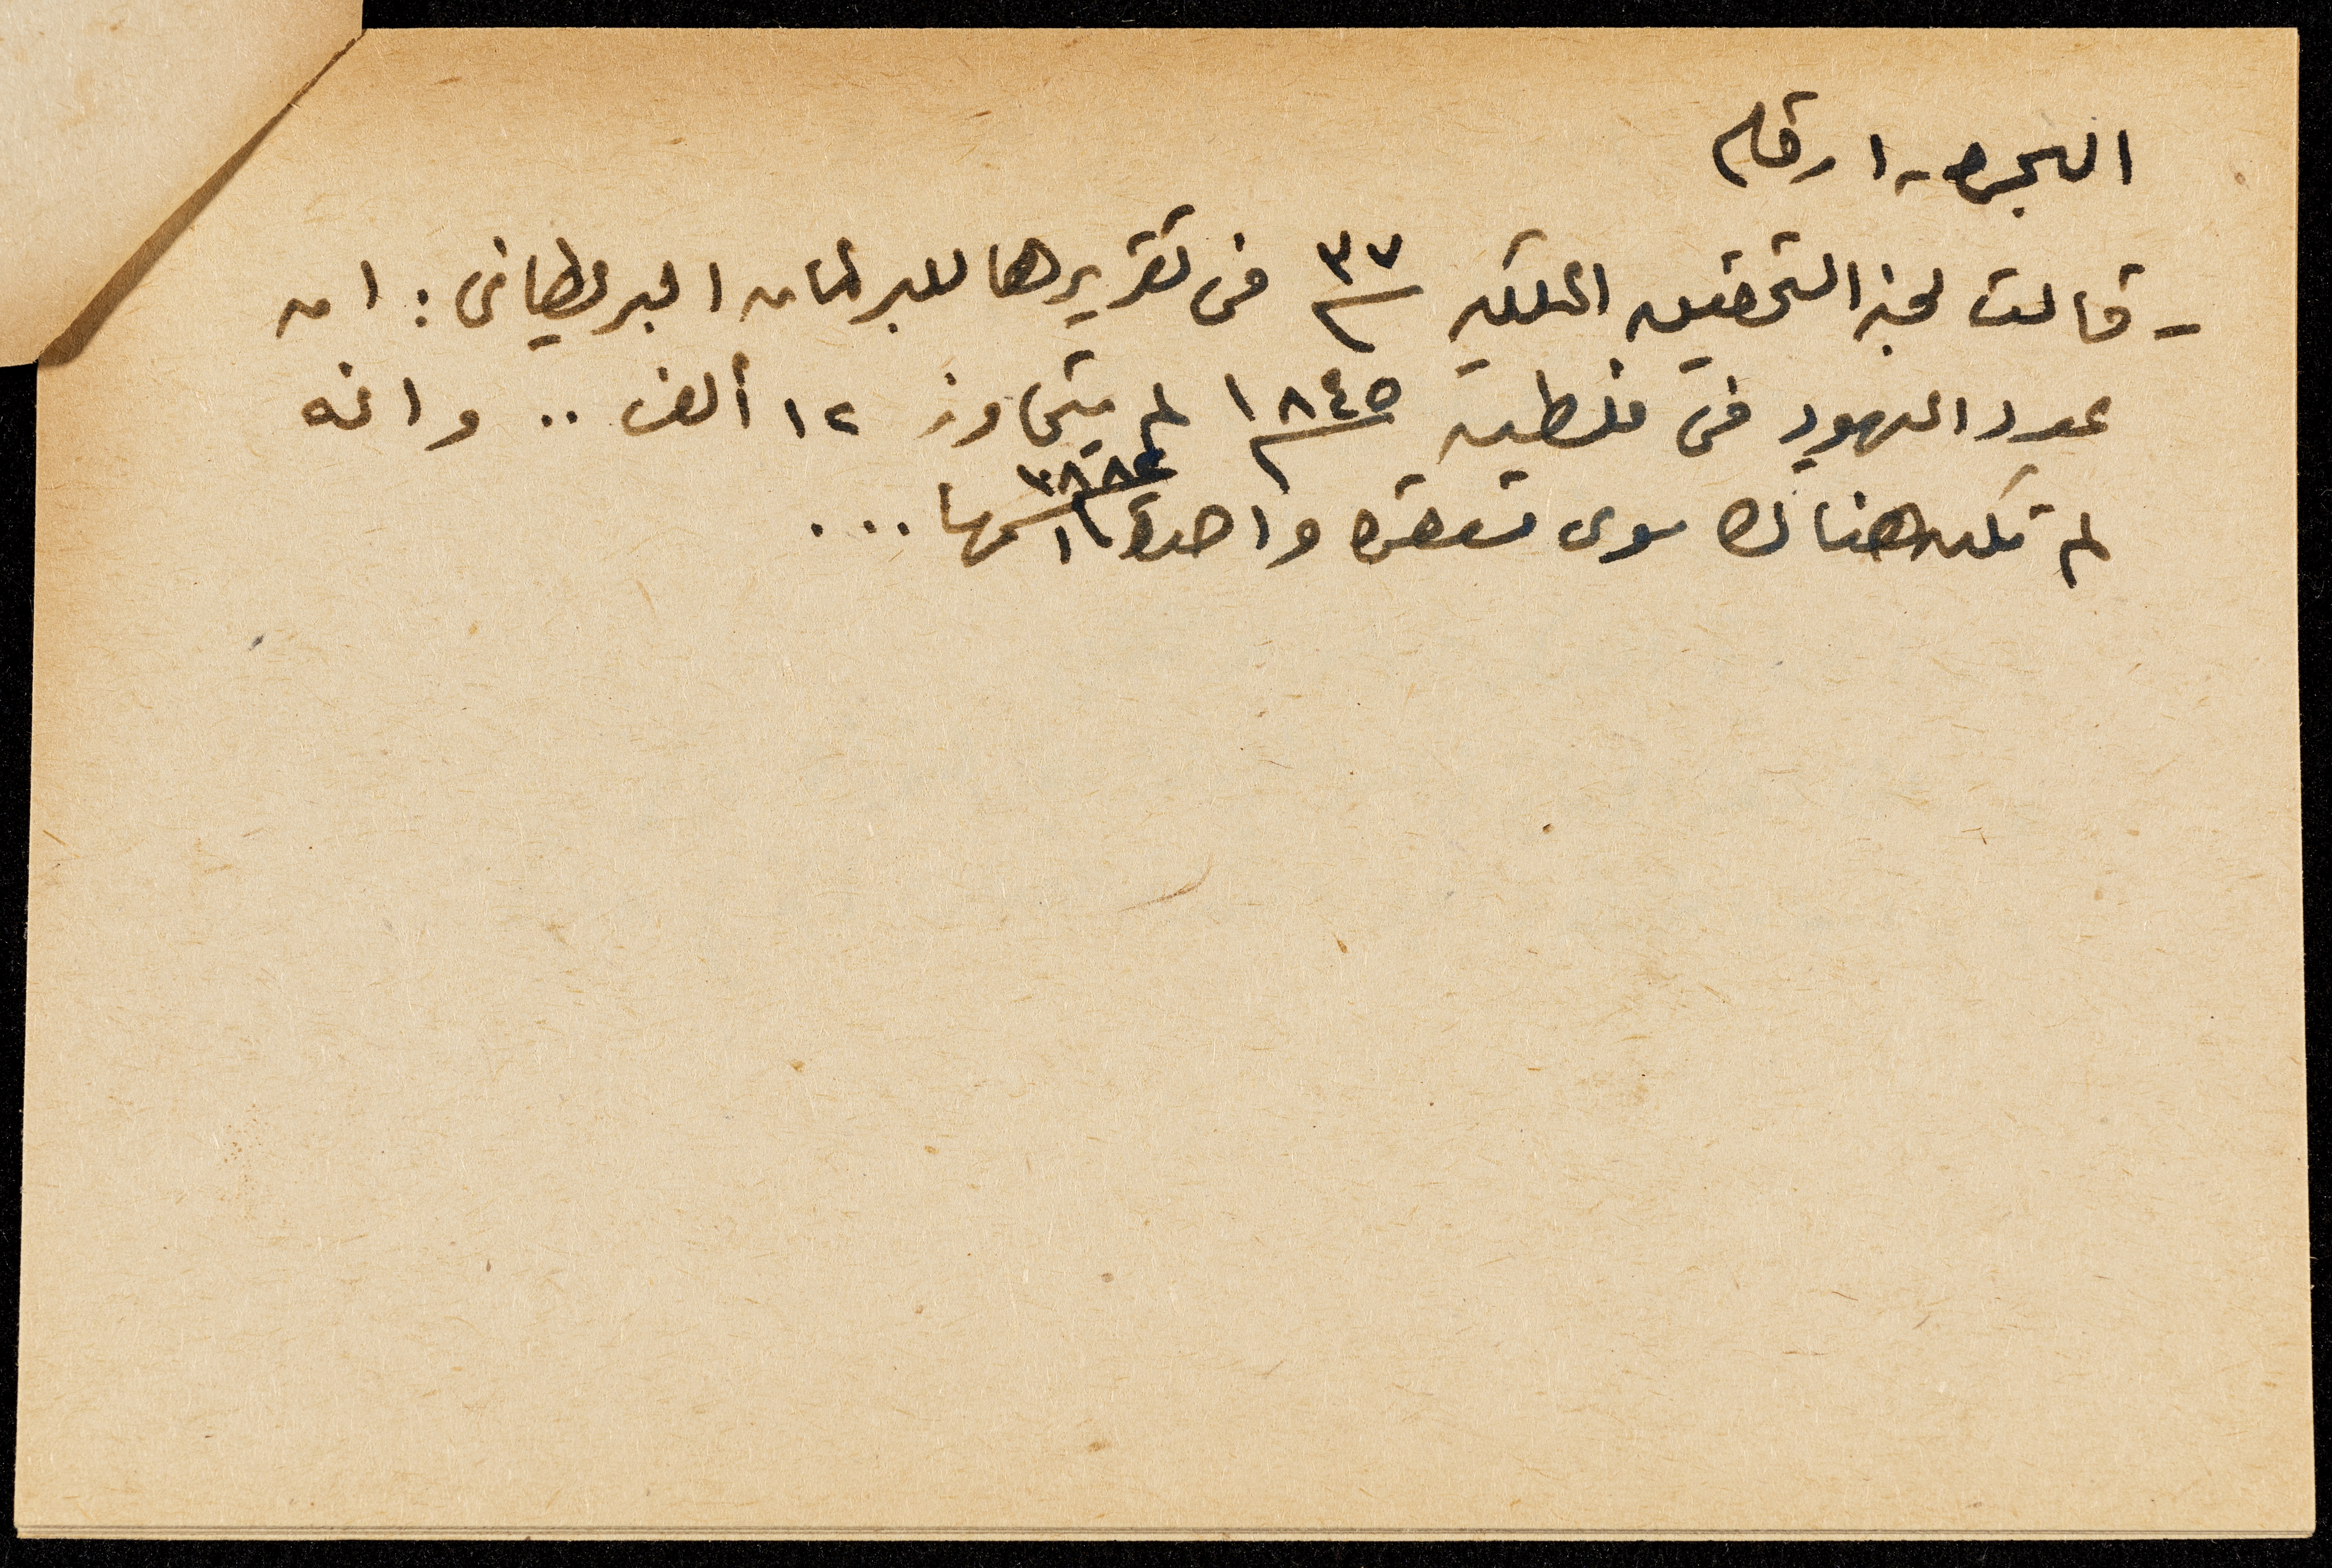 الهجره - ارقام
- قالت لجنه التحقيق الملكيه ٣٧ في تقريرها للبرلمان البريطاني : ان
عدد اليهود في فلسطين ١٨٤٥ لم يتجاوز ١٢ ألف .. وانه
لم تكن هناك سوى مستعمره واحدة ١٨٨٢ اسمها ...